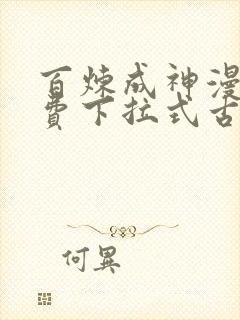 百炼成神漫
费下拉式古
何異